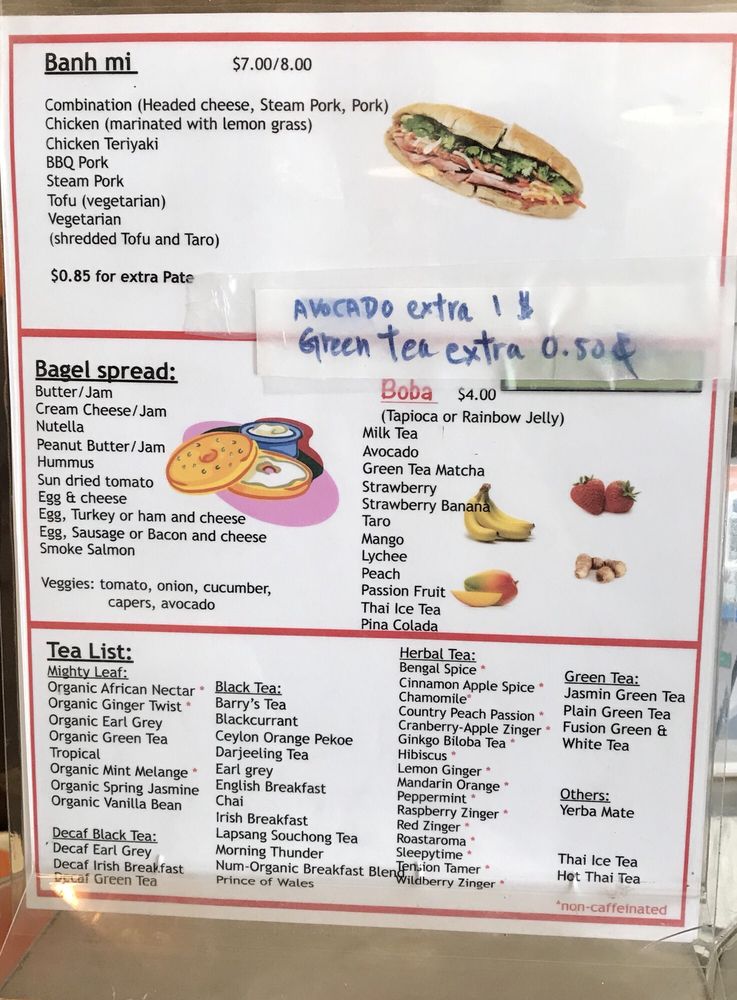 Banh mi $7.00/8.00
Combination (Headed cheese, Steam Pork, Pork)
Chicken (marinated with lemon grass)
Chicken Teriyaki
BBQ Pork
Steam Pork
Tofu (vegetarian)
Vegetarian
(shredded Tofu and Taro)
$0.85 for extra Pate
AVOCADO extra 1 $
Green tea extra 0.50¢
Bagel spread:
Butter/Jam
Cream Cheese/Jam
Nutella
Peanut Butter/Jam
Hummus
Sun dried tomato
Egg & cheese
Egg, Turkey or ham and cheese
Egg, Sausage or Bacon and cheese
Smoke Salmon
Veggies: tomato, onion, cucumber,
capers, avocado
Boba $4.00
(Tapioca or Rainbow Jelly)
Milk Tea
Avocado
Green Tea Matcha
Strawberry
Strawberry Banana
Taro
Mango
Lychee
Peach
Passion Fruit
Thai Ice Tea
Pina Colada
Tea List:
Mighty Leaf:
Organic African Nectar *
Organic Ginger Twist *
Organic Earl Grey
Organic Green Tea
Tropical
Organic Mint Melange *
Organic Spring Jasmine
Organic Vanilla Bean
Decaf Black Tea:
Decaf Earl Grey
Decaf Irish Breakfast
Decaf Green Tea
Black Tea:
Barry's Tea
Blackcurrant
Ceylon Orange Pekoe
Darjeeling Tea
Earl grey
English Breakfast
Chai
Irish Breakfast
Lapsang Souchong Tea
Morning Thunder
Num-Organic Breakfast Blend
Prince of Wales
Herbal Tea:
Bengal Spice *
Cinnamon Apple Spice *
Chamomile*
Country Peach Passion *
Cranberry-Apple Zinger *
Ginkgo Biloba Tea *
Hibiscus *
Lemon Ginger *
Mandarin Orange *
Peppermint *
Raspberry Zinger *
Red Zinger *
Roastaroma *
Sleepytime *
Tension Tamer *
Wildberry Zinger *
Green Tea:
Jasmin Green Tea
Plain Green Tea
Fusion Green &
White Tea
Others:
Yerba Mate
Thai Ice Tea
Hot Thai Tea
*non-caffeinated